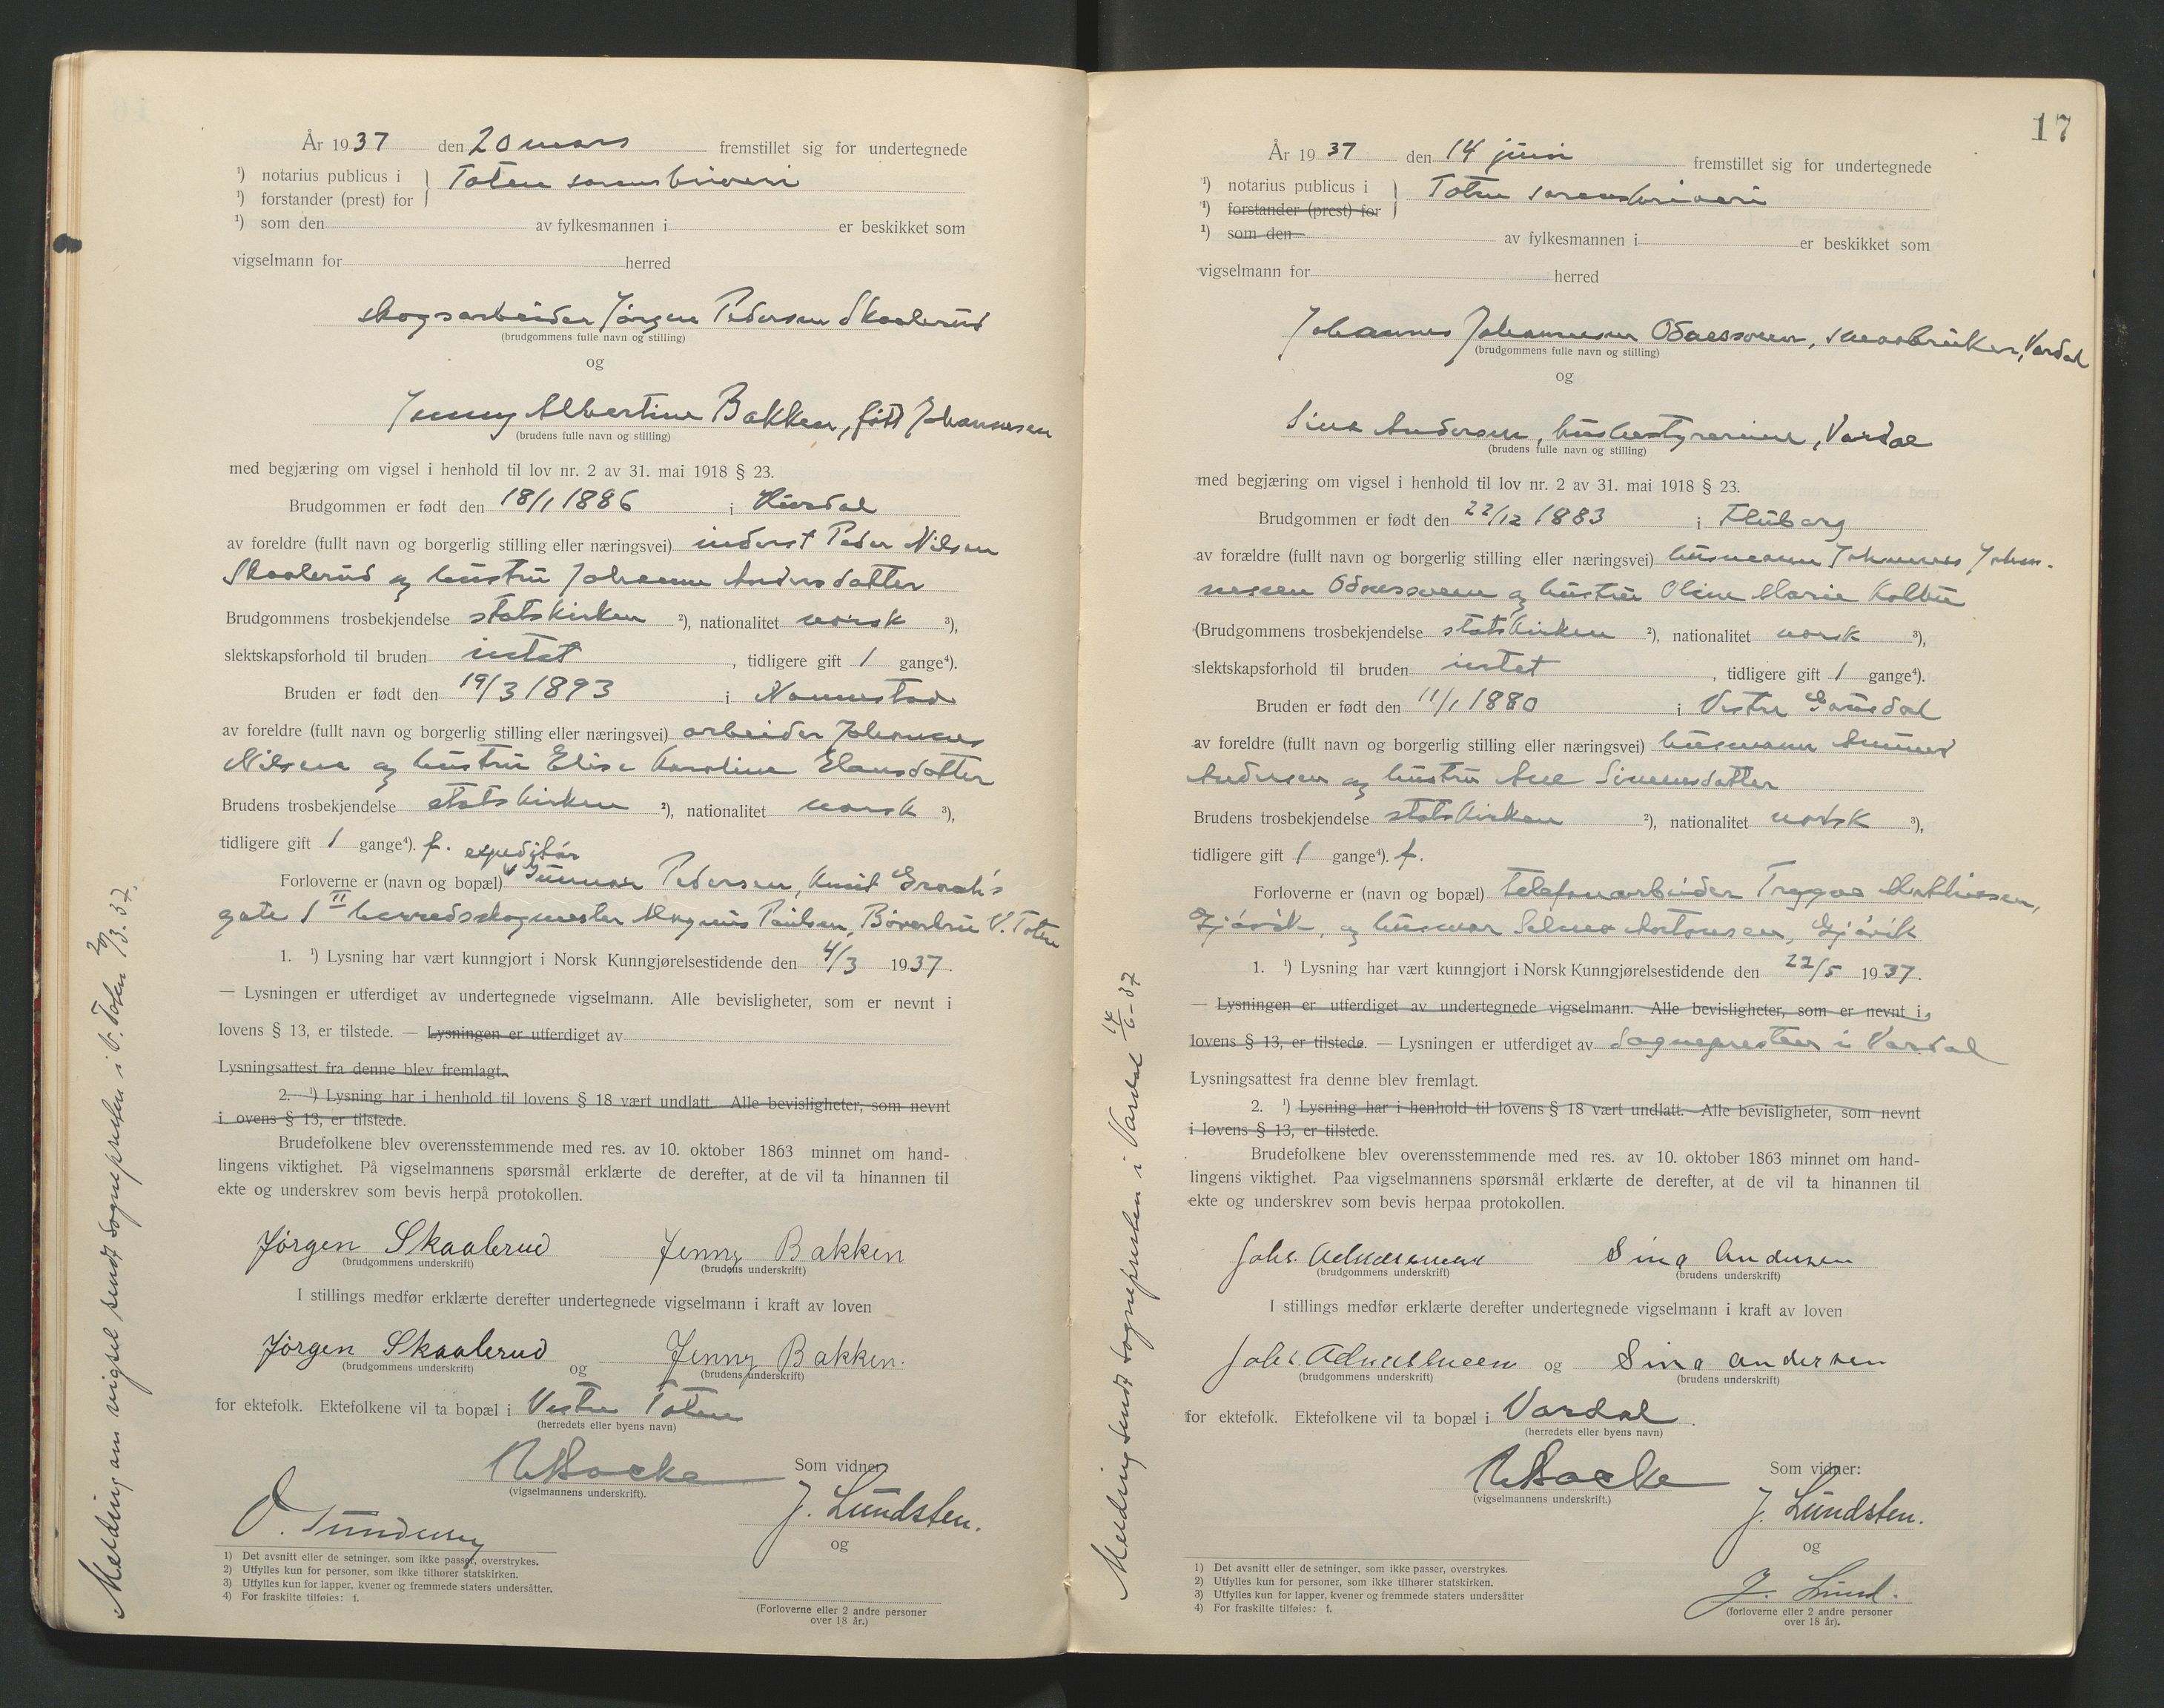 År 1937 den 20 mars fremstillet sig for undertegnede
¹) notarius publicus i } Toten sorenskriveri
¹) forstander (prest) for
¹) som den av fylkesmannen i er beskikket som
vigselmann for herred
skogsarbeider Jørgen Pedersen Skaalerud
(brudgommens fulle navn og stilling)
og
Jenny Albertine Bakken, født Johannesen
(brudens fulle navn og stilling)
med begjæring om vigsel i henhold til lov nr. 2 av 31. mai 1918 § 23.
Brudgommen er født den 18/1 1886 i Hurdal
av foreldre (fullt navn og borgerlig stilling eller næringsvei) inderst Peder Nilsen
Skaalerud og hustru Johanne Andersdatter
Brudgommens trosbekjendelse statskirken ²), nationalitet norsk ³),
slektskapsforhold til bruden intet , tidligere gift 1 gange⁴).
Bruden er født den 19/3 1893 i Nannestad
av foreldre (fullt navn og borgerlig stilling eller næringsvei) arbeider Johannes
Nilsen og hustru Elise Karoline Hansdatter
Brudens trosbekjendelse statskirken ²), nationalitet norsk ³),
tidligere gift 1 gange⁴). f. expeditør
Forloverne er (navn og bopæl) Gunnar Pedersen, Knud Graah's
gate 1 II herredsskogmester Magnus Paulsen, Bøverbru V. Toten
1. ¹) Lysning har vært kunngjort i Norsk Kunngjørelsestidende den 4/3 1937.
— Lysningen er utferdiget av undertegnede vigselmann. Alle bevisligheter, som er nevnt i
lovens § 13, er tilstede. — Lysningen er utferdiget av
Lysningsattest fra denne blev fremlagt.
2. ¹) Lysning har i henhold til lovens § 18 vært undlatt. Alle bevisligheter, som nevnt
i ovens § 13, er tilstede.
Brudefolkene blev overensstemmende med res. av 10. oktober 1863 minnet om hand-
lingens viktighet. På vigselmannens spørsmål erklærte de derefter, at de vil ta hinannen til
ekte og underskrev som bevis herpå protokollen.
Jørgen Skaalerud Jenny Bakken
(brudgommens underskrift) (brudens underskrift)
I stillings medfør erklærte derefter undertegnede vigselmann i kraft av loven
Jørgen Skaalerud og Jenny Bakken.
(brudgommens underskrift) (brudens underskrift)
for ektefolk. Ektefolkene vil ta bopæl i Vestre Toten
(herredets eller byens navn)
Som vidner
(vigselmannens underskrift).
J. Lundsten.
og
1) Det avsnitt eller de setninger, som ikke passer, overstrykes.
2) Utfylles kun for personer, som ikke tilhører statskirken.
3) Utfylles kun for lapper, kvener og fremmede staters undersåtter.
4) For fraskilte tilføies: f.
(Forloverne eller 2 andre personer
over 18 år.)
Melding om vigsel sendt sognepresten i V. Toten 20/3. 37.
17
År 1937 den 14 juni fremstillet sig for undertegnede
¹) notarius publicus i } Toten sorenskriveri
¹) forstander (prest) for
¹) som den av fylkesmannen i er beskikket som
vigselmann for herred
Johannes Johannesen Odnessveen, smaabruker, Vardal
(brudgommens fulle navn og stilling)
og
Sina Andersen, husbestyrerinne, Vardal
(brudens fulle navn og stilling)
med begjæring om vigsel i henhold til lov nr. 2 av 31. mai 1918 § 23.
Brudgommen er født den 22/12 1883 i Fluberg
av forældre (fullt navn og borgerlig stilling eller næringsvei) husmann Johannes Johan-
nessen Odnessveen og hustru Oline Marie Kolbu
(Brudgommens trosbekjendelse statskirken ²), nationalitet norsk ³),
slektskapsforhold til bruden intet , tidligere gift 1 gange⁴).
Bruden er født den 11/1 1880 i Vestre Gausdal
av foreldre (fullt navn og borgerlig stilling eller næringsvei) husmann Amund
Andersen og hustru Ane Simensdatter
Brudens trosbekjendelse statskirken ²), nationalitet norsk ³),
tidligere gift 1 gange⁴). f.
Forloverne er (navn og bopæl) telefonarbeider Trygve Mathisen,
Gjøvik, og husmor Selma Antonsen, Gjøvik
1. ¹) Lysning har vært kunngjort i Norsk Kunngjørelsestidende den 22/5 1937.
— Lysningen er utferdiget av undertegnede vigselmann. Alle bevisligheter, som er nevnt i
lovens § 13, er tilstede. — Lysningen er utferdiget av Sognepresten i Vardal
Lysningsattest fra denne blev fremlagt.
2. ¹) Lysning har i henhold til lovens § 18 vært undlatt. Alle bevisligheter, som nevnt
i lovens § 13, er tilstede.
Brudefolkene blev overensstemmende med res. av 10. oktober 1863 minnet om hand-
lingens viktighet. Paa vigselmannens spørsmål erklærte de derefter, at de vil ta hinannen til
ekte og underskrev som bevis herpaa protokollen.
Johs. Sina Andersen
(brudgommens underskrift) (brudens underskrift)
I stillings medfør erklærte derefter undertegnede vigselmann i kraft av loven
Johs. og Sina Andersen
(brudgommens underskrift) (brudens underskrift)
for ektefolk. Ektefolkene vil ta bopæl i Vardal.
(herredets eller byens navn)
Som vidner:
(vigselmannens underskrift.)
J. Lundsten.
og
J. Lund.
1) Det avsnitt eller de setninger, som ikke passer, overstrykes.
2) Utfylles kun for personer, som ikke tilhører statskirken.
3) Utfylles kun for lapper, kvener og fremmede staters undersåtter
4) For fraskilte tilføies: f.
(forloverne eller 2 andre personer
over 18 år).
Melding sendt sognepresten i Vardal 14/6-37